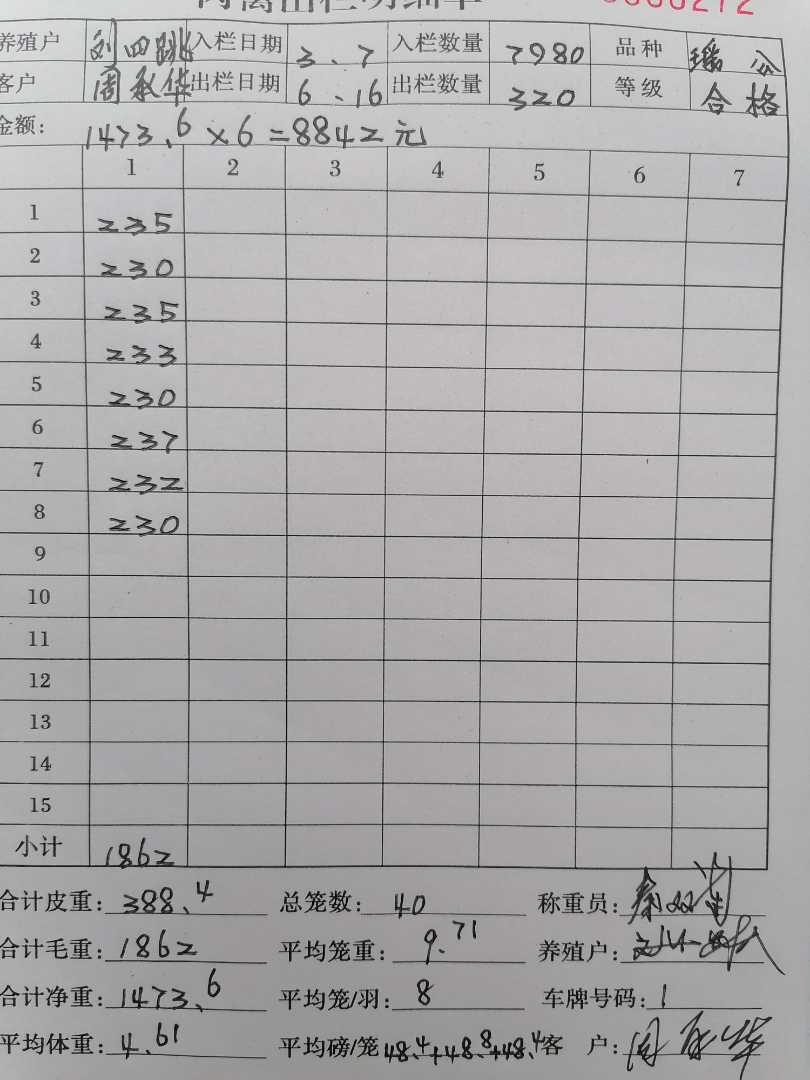 养殖户 刘四跳 入栏日期 3.7 入栏数量 7980 品种 瑶公
客户 周承华 出栏日期 6.16 出栏数量 320 等级 合格
金额: 1473.6×6=8842元
1 2 3 4 5 6 7
1 235
2 230
3 235
4 233
5 230
6 237
7 232
8 230
9
10
11
12
13
14
15
小计 1862
合计皮重: 388.4 总笼数: 40 称重员:
合计毛重: 1862 平均笼重: 9.71 养殖户:
合计净重: 1473.6 平均笼/羽: 8 车牌号码: 1
平均体重: 4.61 平均磅/笼 48.4+48.8+48.4 客 户: 周承华